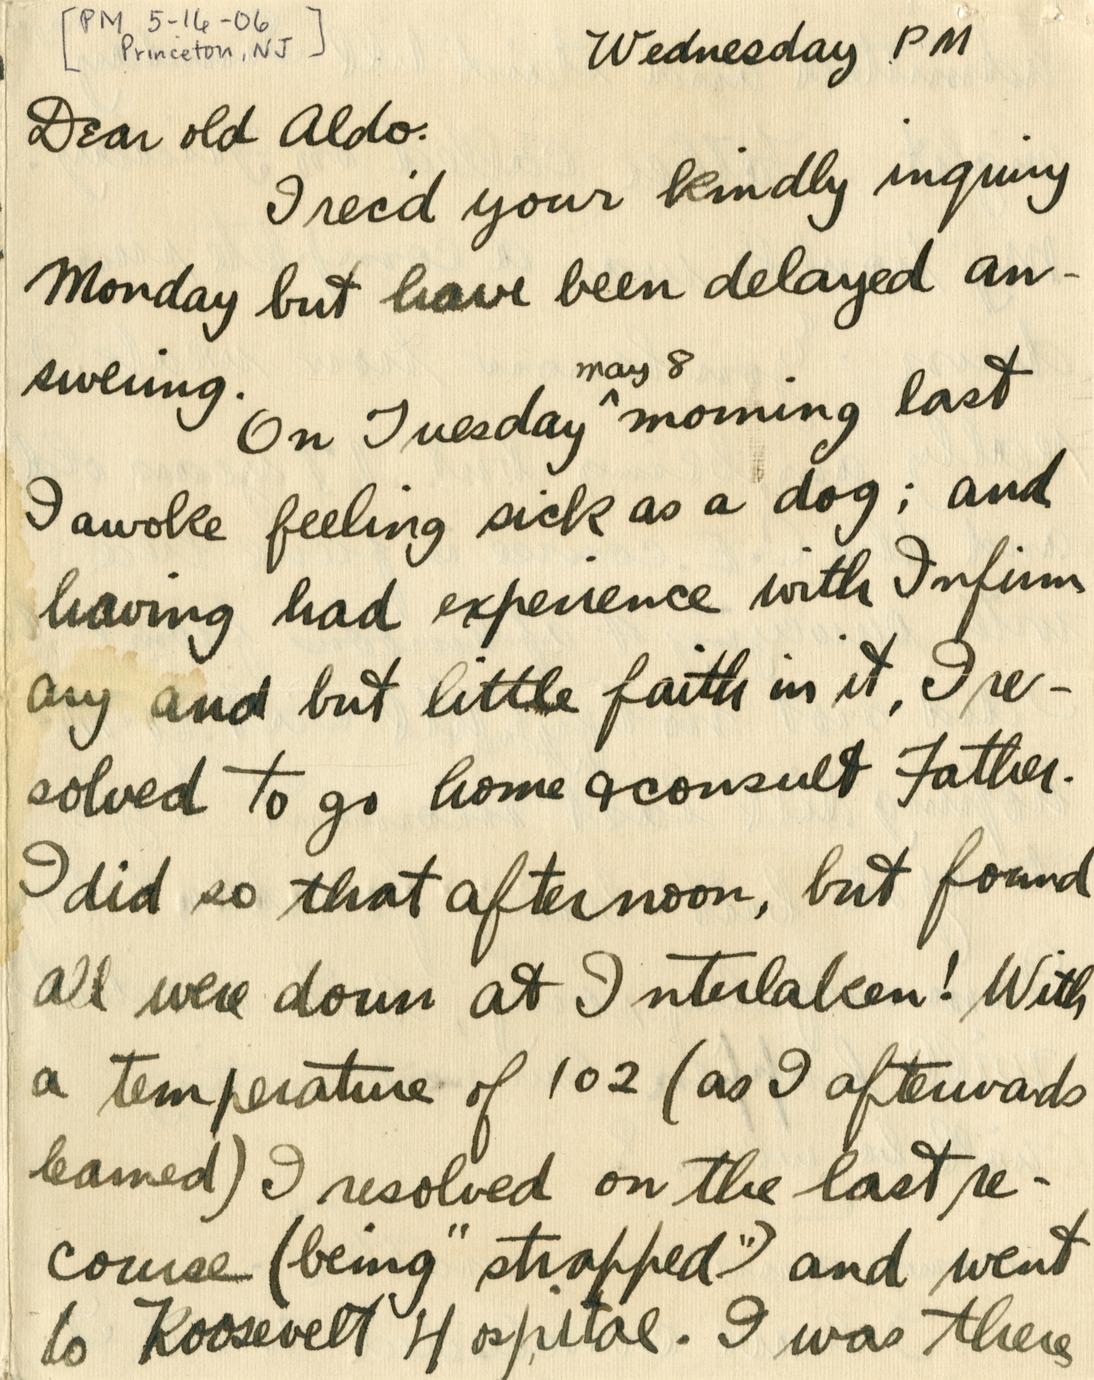 [PM 5-16-06
Princeton, NJ]
Wednesday PM
Dear old Aldo:
I rec'd your kindly inquiry
Monday but have been delayed an-
swering.
may 8
On Tuesday ^ morning last
I awoke feeling sick as a dog; and
having had experience with Infirm
ary and but little faith in it, I re-
solved to go home & consult Father.
I did so that afternoon, but found
all were down at Interlaken! With
a temperature of 102 (as I afterwards
learned) I resolved on the last re-
course (being "strapped") and went
to Roosevelt Hospital. I was there